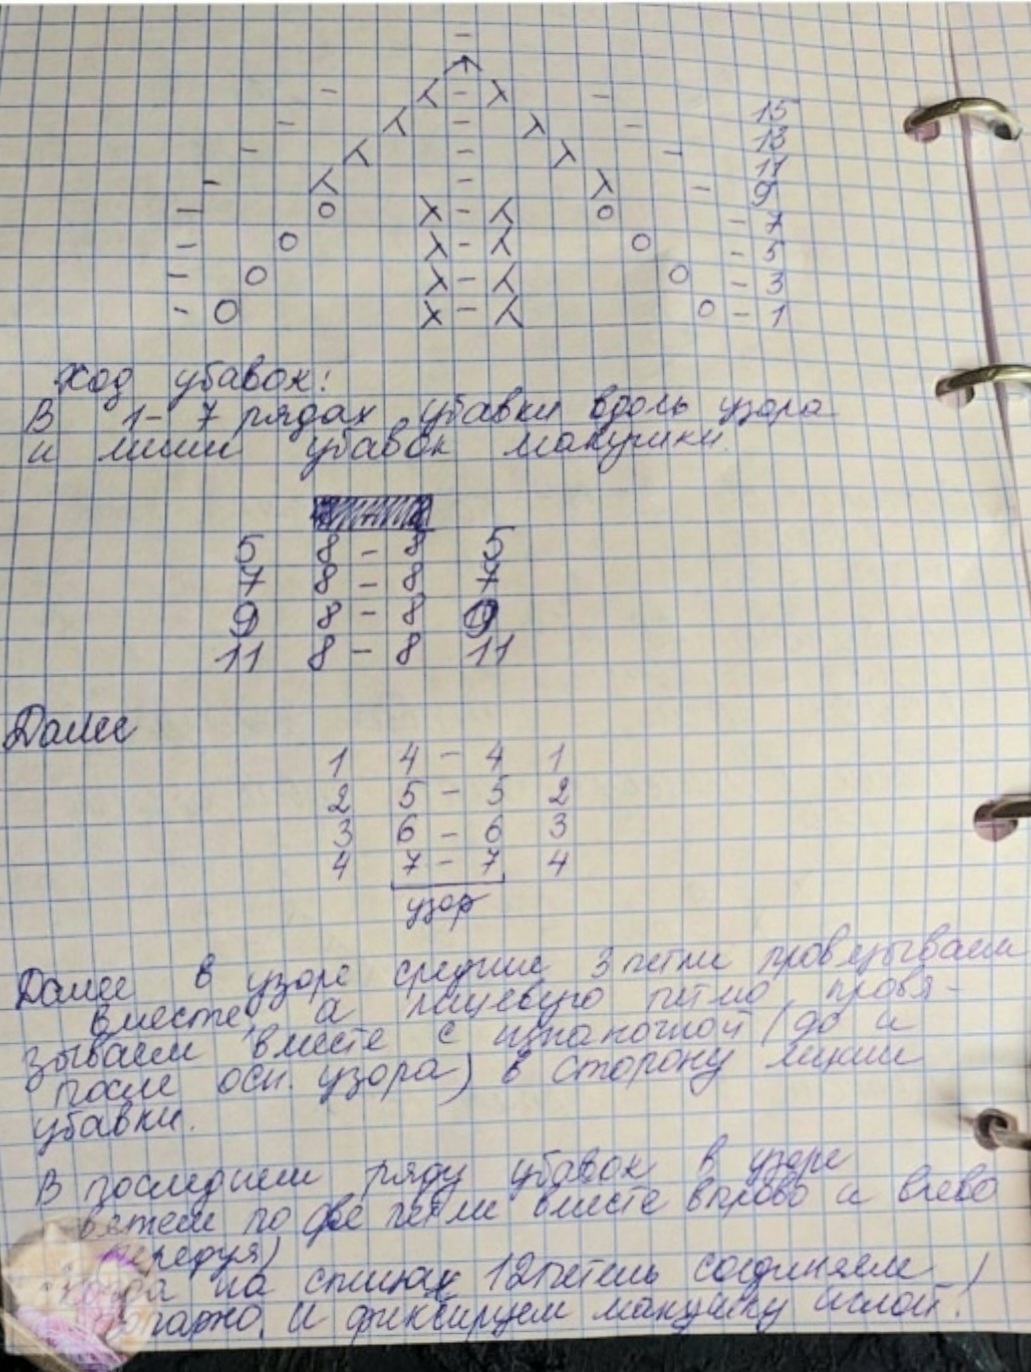 -
- ⋏ - ⋋ - 15
- ⋏ - ⋋ - 13
- ⋏ - ⋋ - 11
- ⋏ - ⋋ - 9
- O ⋋ - ⋌ O - 7
- O ⋋ - ⋌ O - 5
- O ⋋ - ⋌ O - 3
- O ⋋ - ⋌ O - 1
Ход убавок:
В 1-7 рядах убавки вдоль узора
и линии убавок макушки.
5 8 - 8 5
7 8 - 8 7
9 8 - 8 9
11 8 - 8 11
Далее
1 4 - 4 1
2 5 - 5 2
3 6 - 6 3
4 7 - 7 4
узор
Далее в узоре средние 3 петли провязываем
вместе, а лицевую петлю провя-
зываем вместе с изнаночной (до и
после осн. узора) в сторону линии
убавки.
В последнем ряду убавок в узоре
вяжем по две петли вместе вправо и влево
на спицах 12 петель соединяем
и фиксируем макушку иглой!